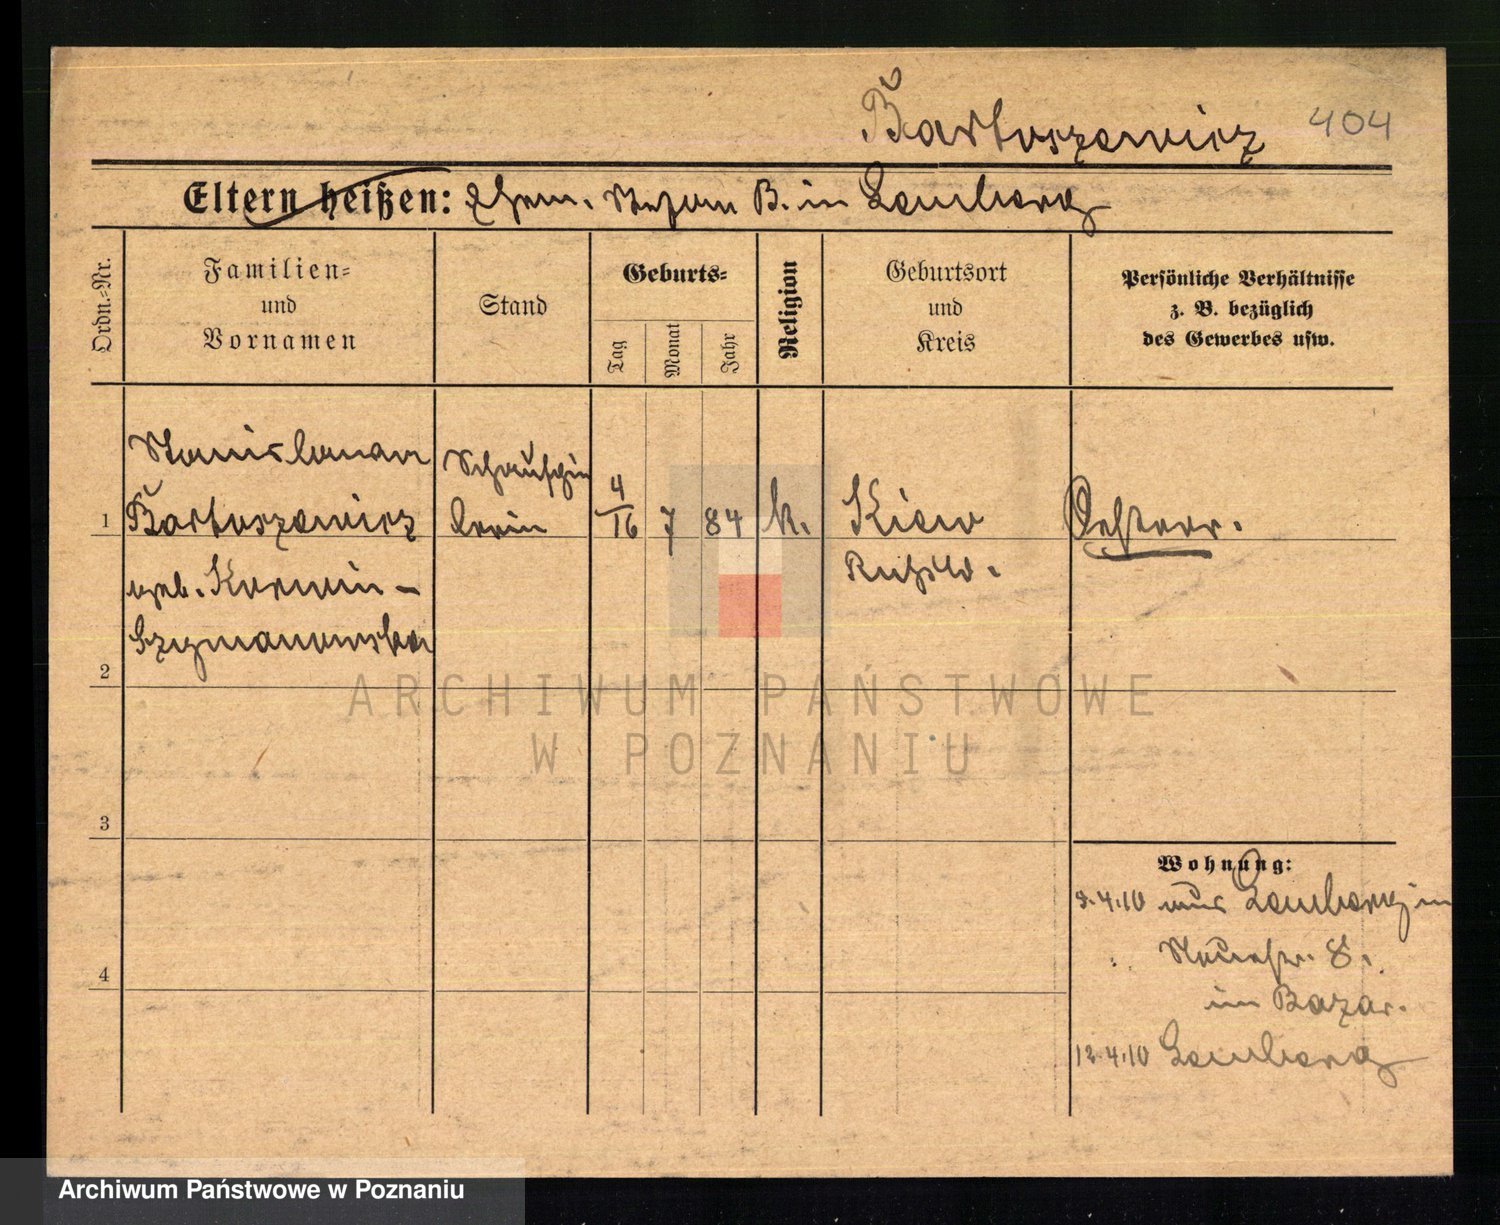 Bartoszewicz 404
Eltern heißen: Ehem. Stefan B. in Lemberg
Ordn.-Nr.
Familien-
und
Vornamen
Stand
Geburts-
Tag
Monat
Jahr
Religion
Geburtsort
und
Kreis
Persönliche Verhältnisse
z. B. bezüglich
des Gewerbes usw.
Stanislawa
Schauspie
lerin
1 Bartoszewicz 4/16 7 84 k. Kiew Oesterr.
geb. Korwin-
Rußld.
Szymanowska
2
3
4
Wohnung:
9.4.10 aus Lemberg in
Neuestr. 8.
im Bazar.
12.4.10 Lemberg
ARCHIWUM PAŃSTWOWE
W POZNANIU
Archiwum Państwowe w Poznaniu